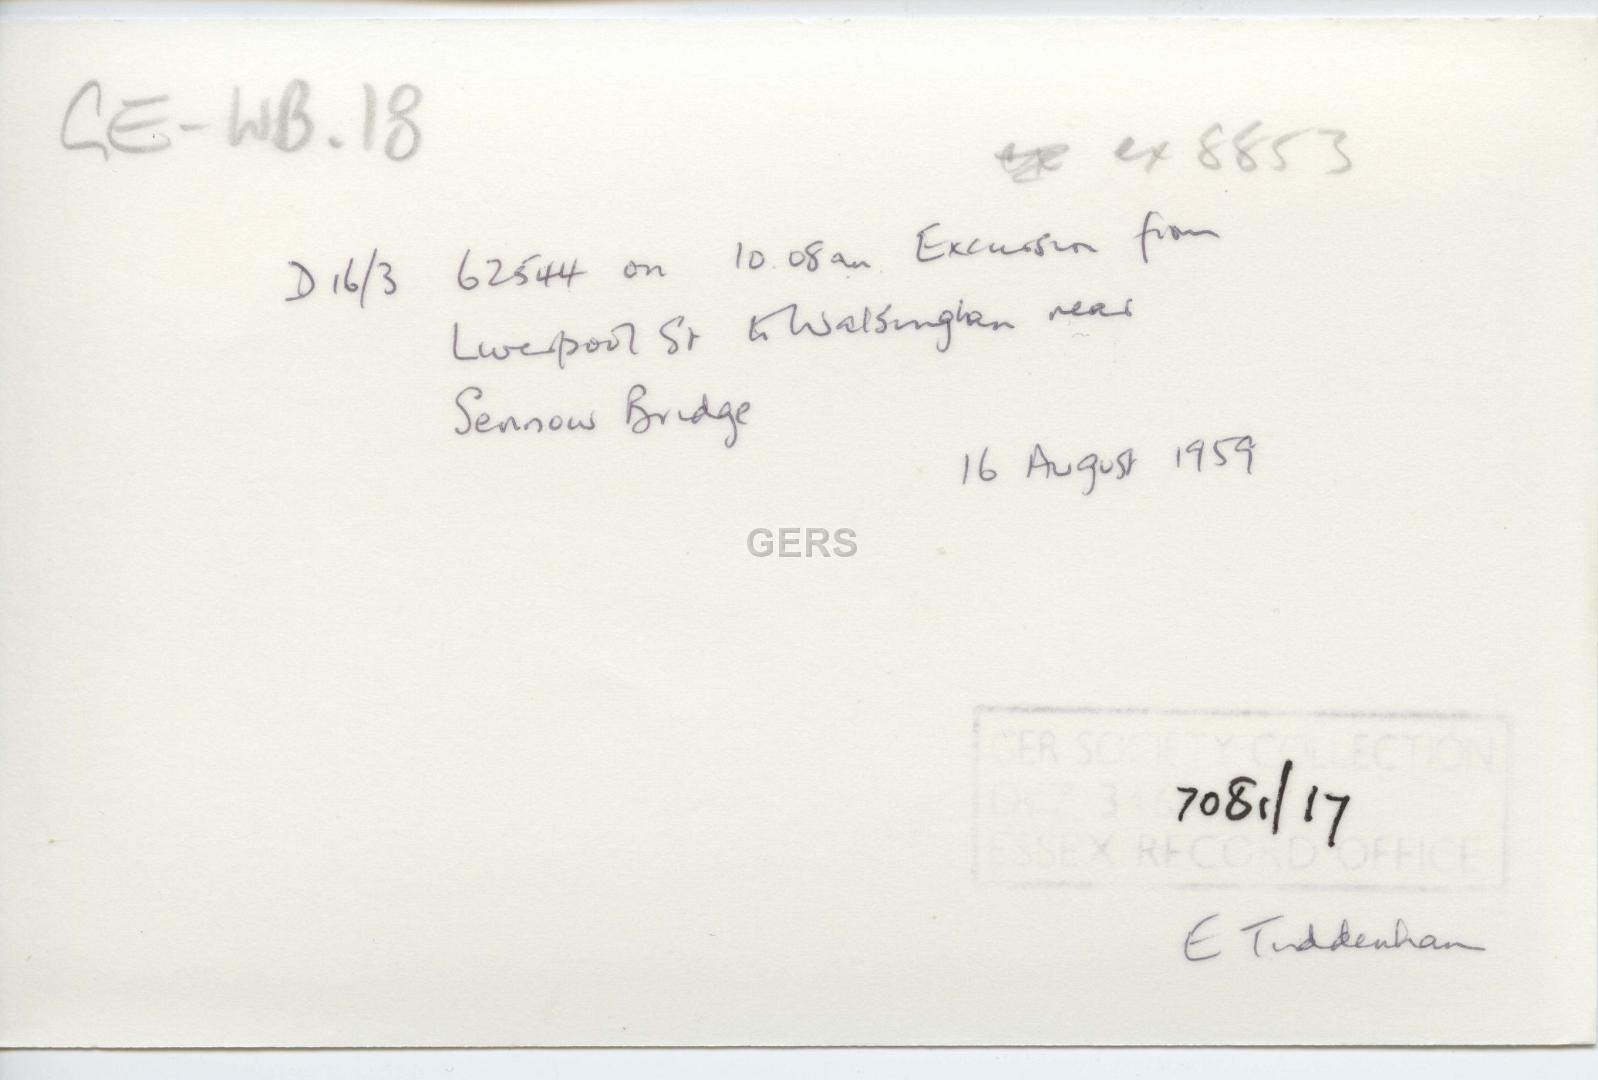 GE-WB.18
ex 8853
D16/3 62544 on 10.08am Excursion from
Liverpool St to Walsingham near
Sennow Bridge
16 August 1959
GERS
GER SOCIETY COLLECTION
7081/17
ESSEX RECORD OFFICE
E Tuddenham